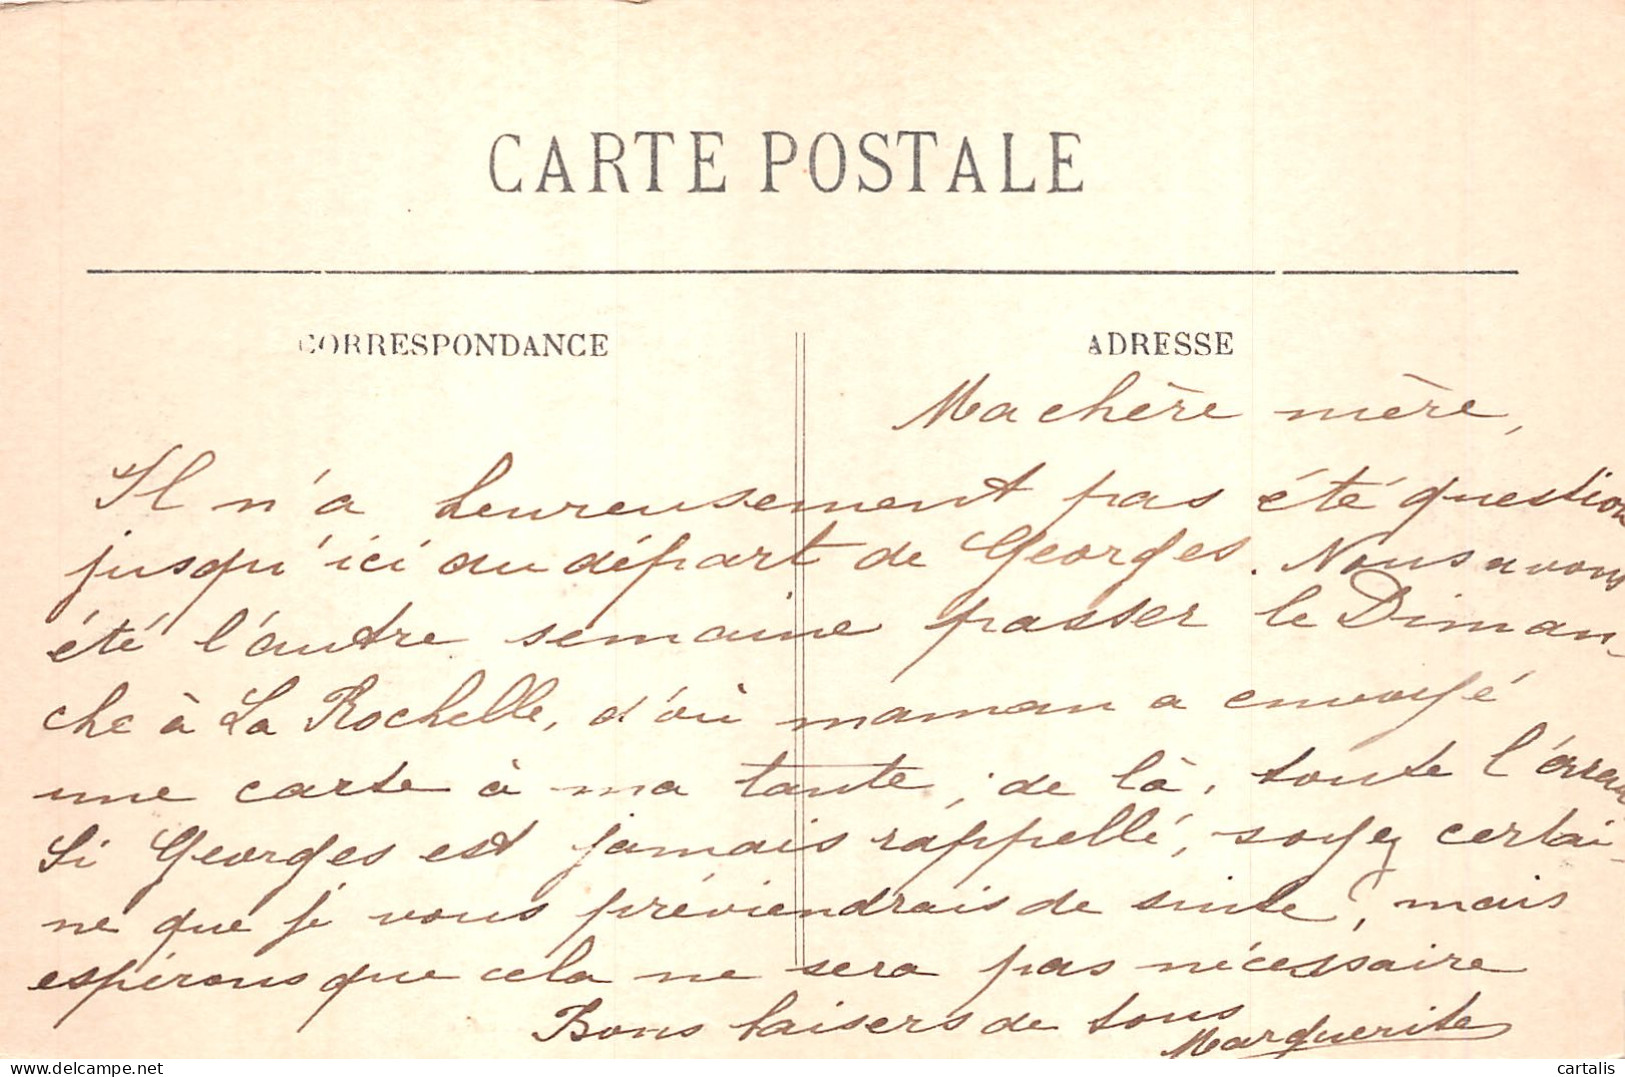 CARTE POSTALE
CORRESPONDANCE
ADRESSE
Ma chère mère,
Il n'a heureusement pas été question
jusqu'ici du départ de Georges. Nous avons
été l'autre semaine passer le Diman-
che à La Rochelle, d'où maman a envoyé
une carte à ma tante ; de là, toute l'erreur
Si Georges est jamais rappellé, soyez certai-
ne que je vous préviendrais de suite, mais
espérons que cela ne sera pas nécessaire
Bons baisers de tous
Marguerite
www.delcampe.net
cartalis